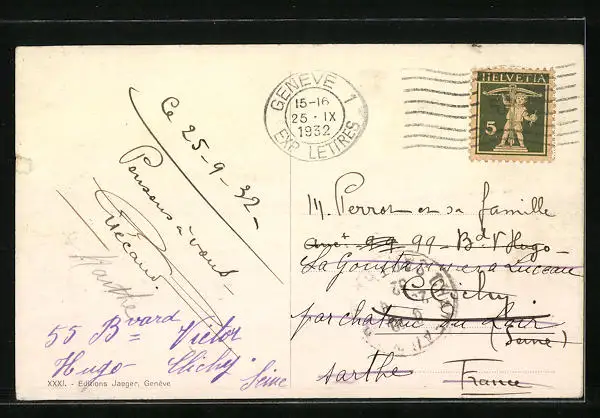 GENÈVE 1
15-16
25·IX
1932
EXP. LETTRES
HELVETIA
5
Ce 25-9-32-
Pensons à vous-
Marthe
55 Bvard Victor
Hugo Clichy
Seine
M. Perrot et sa famille
99 - Bd V. Hugo -
à Luceau
Clichy
par château du Loir
(Seine)
sarthe
France
XXXI. - Editions Jaeger, Genève